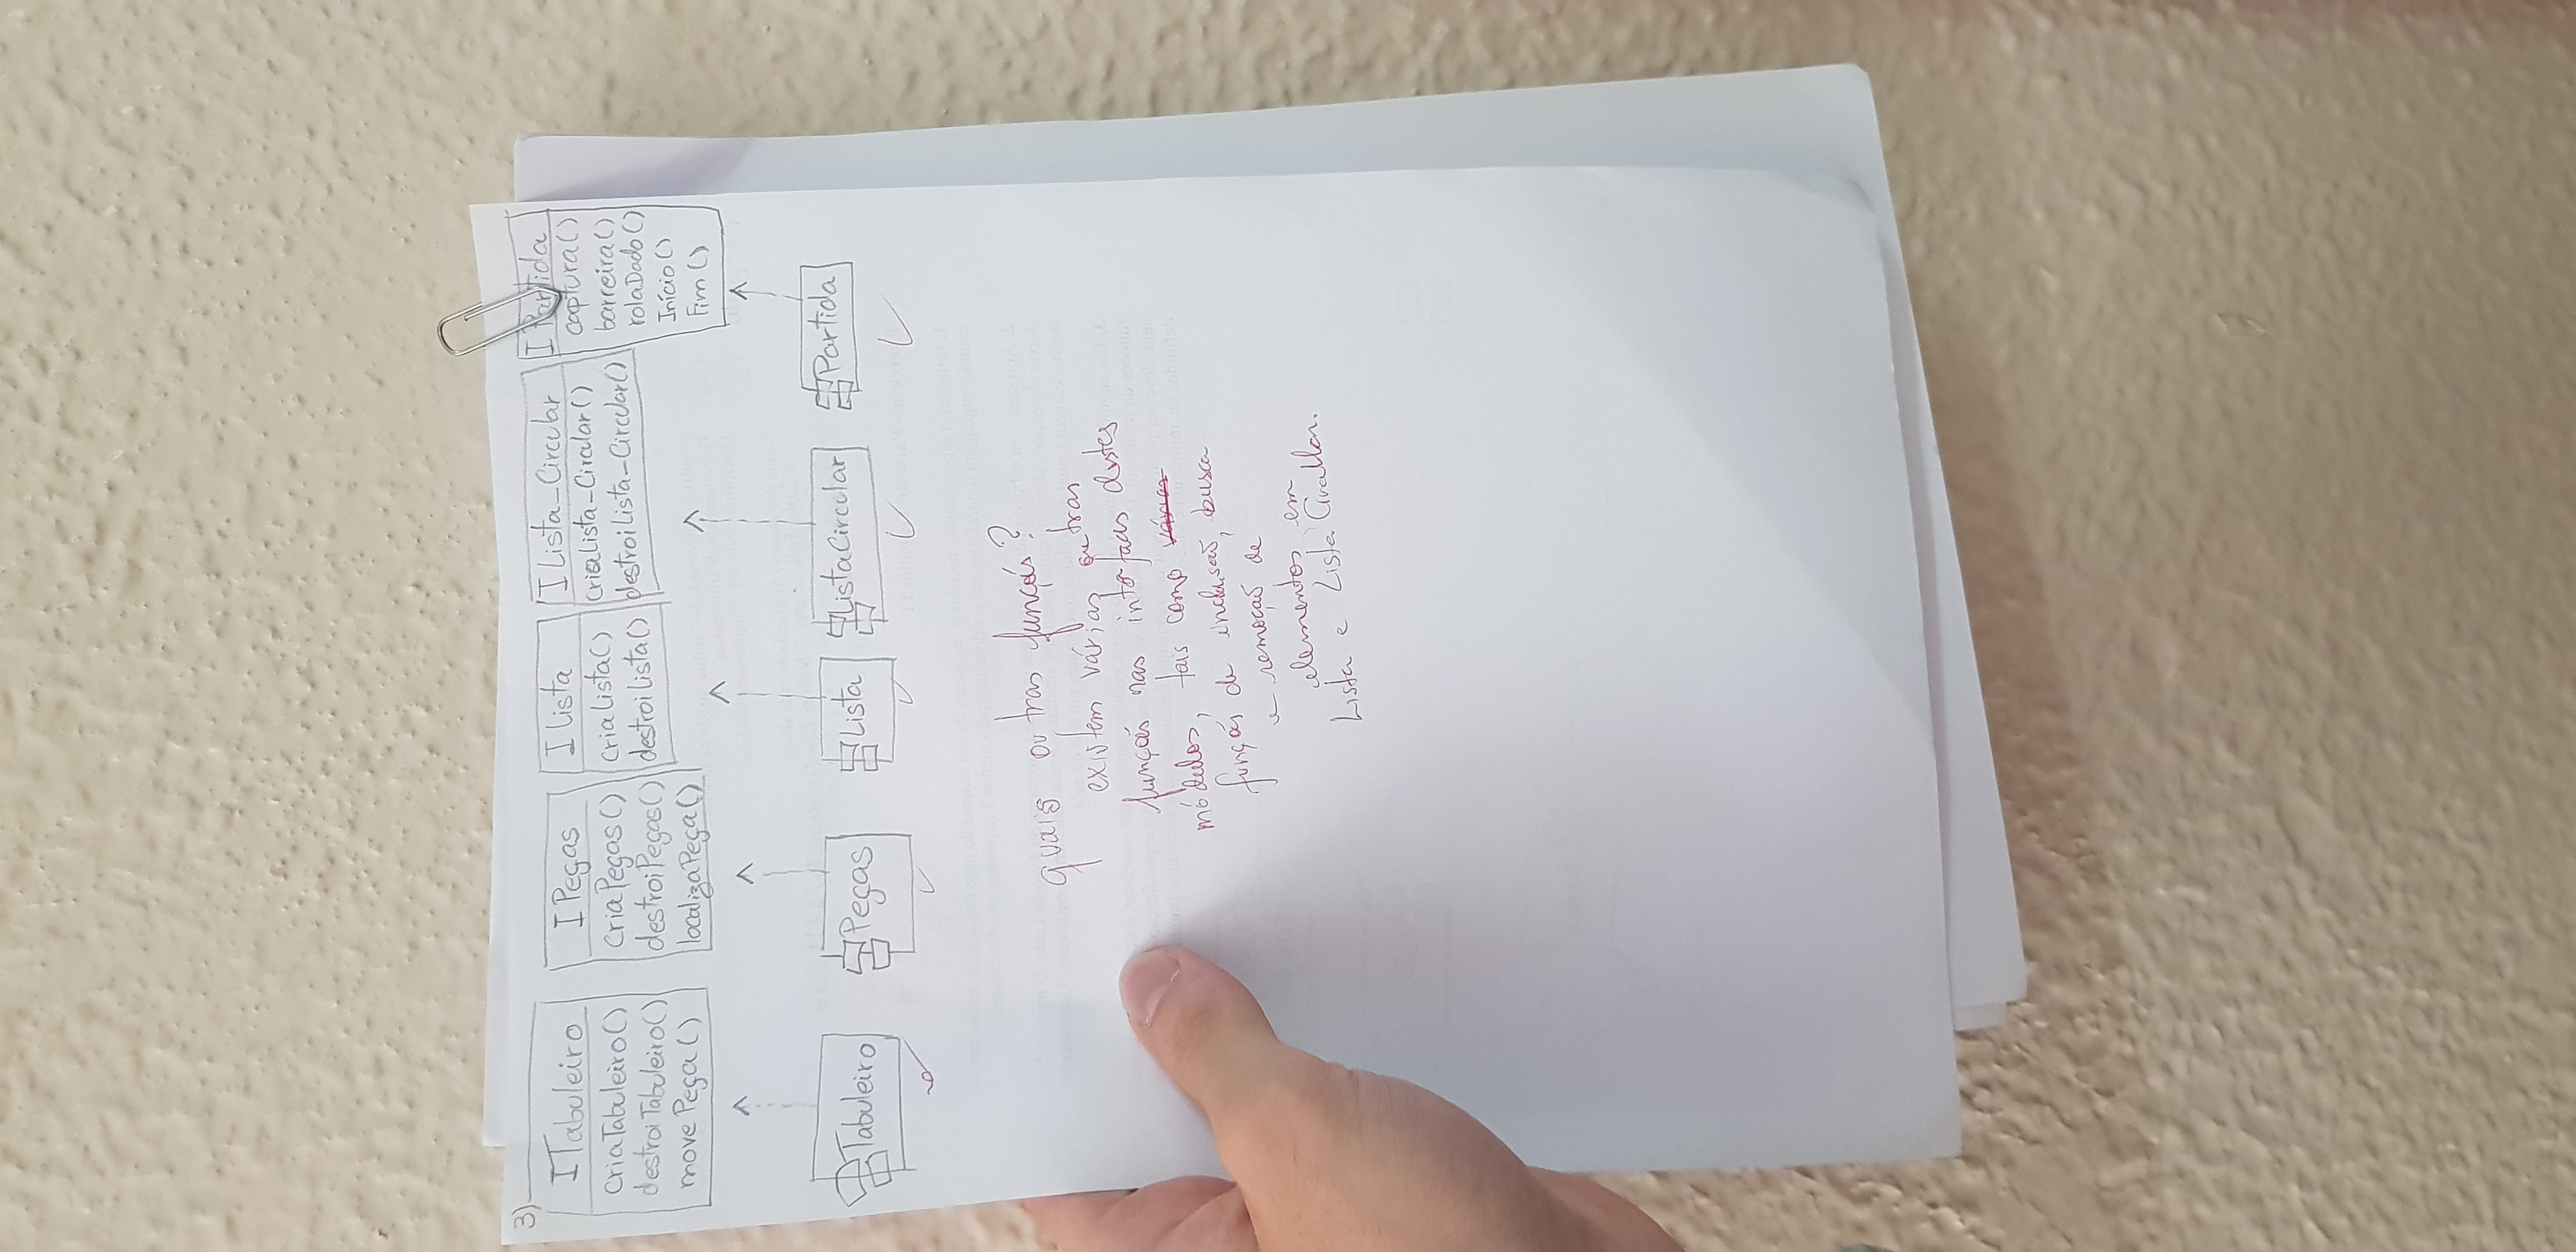 3)
ITabuleiro
criaTabuleiro()
destroiTabuleiro()
movePeça()
IPeças
criaPeças()
destroiPeças()
localizaPeça()
ILista
criaLista()
destroiLista()
ILista_Circular
criaLista_Circular()
destroiLista_Circular()
IPartida
captura()
barreira()
rolaDado()
Início()
Fim()
Tabuleiro
Peças
Lista
ListaCircular
Partida
quais outras funções?
existem várias outras
funções nas interfaces destes
módulos, tais como várias
funções de inclusão, busca
e remoção de
elementos em
Lista e Lista Circular.